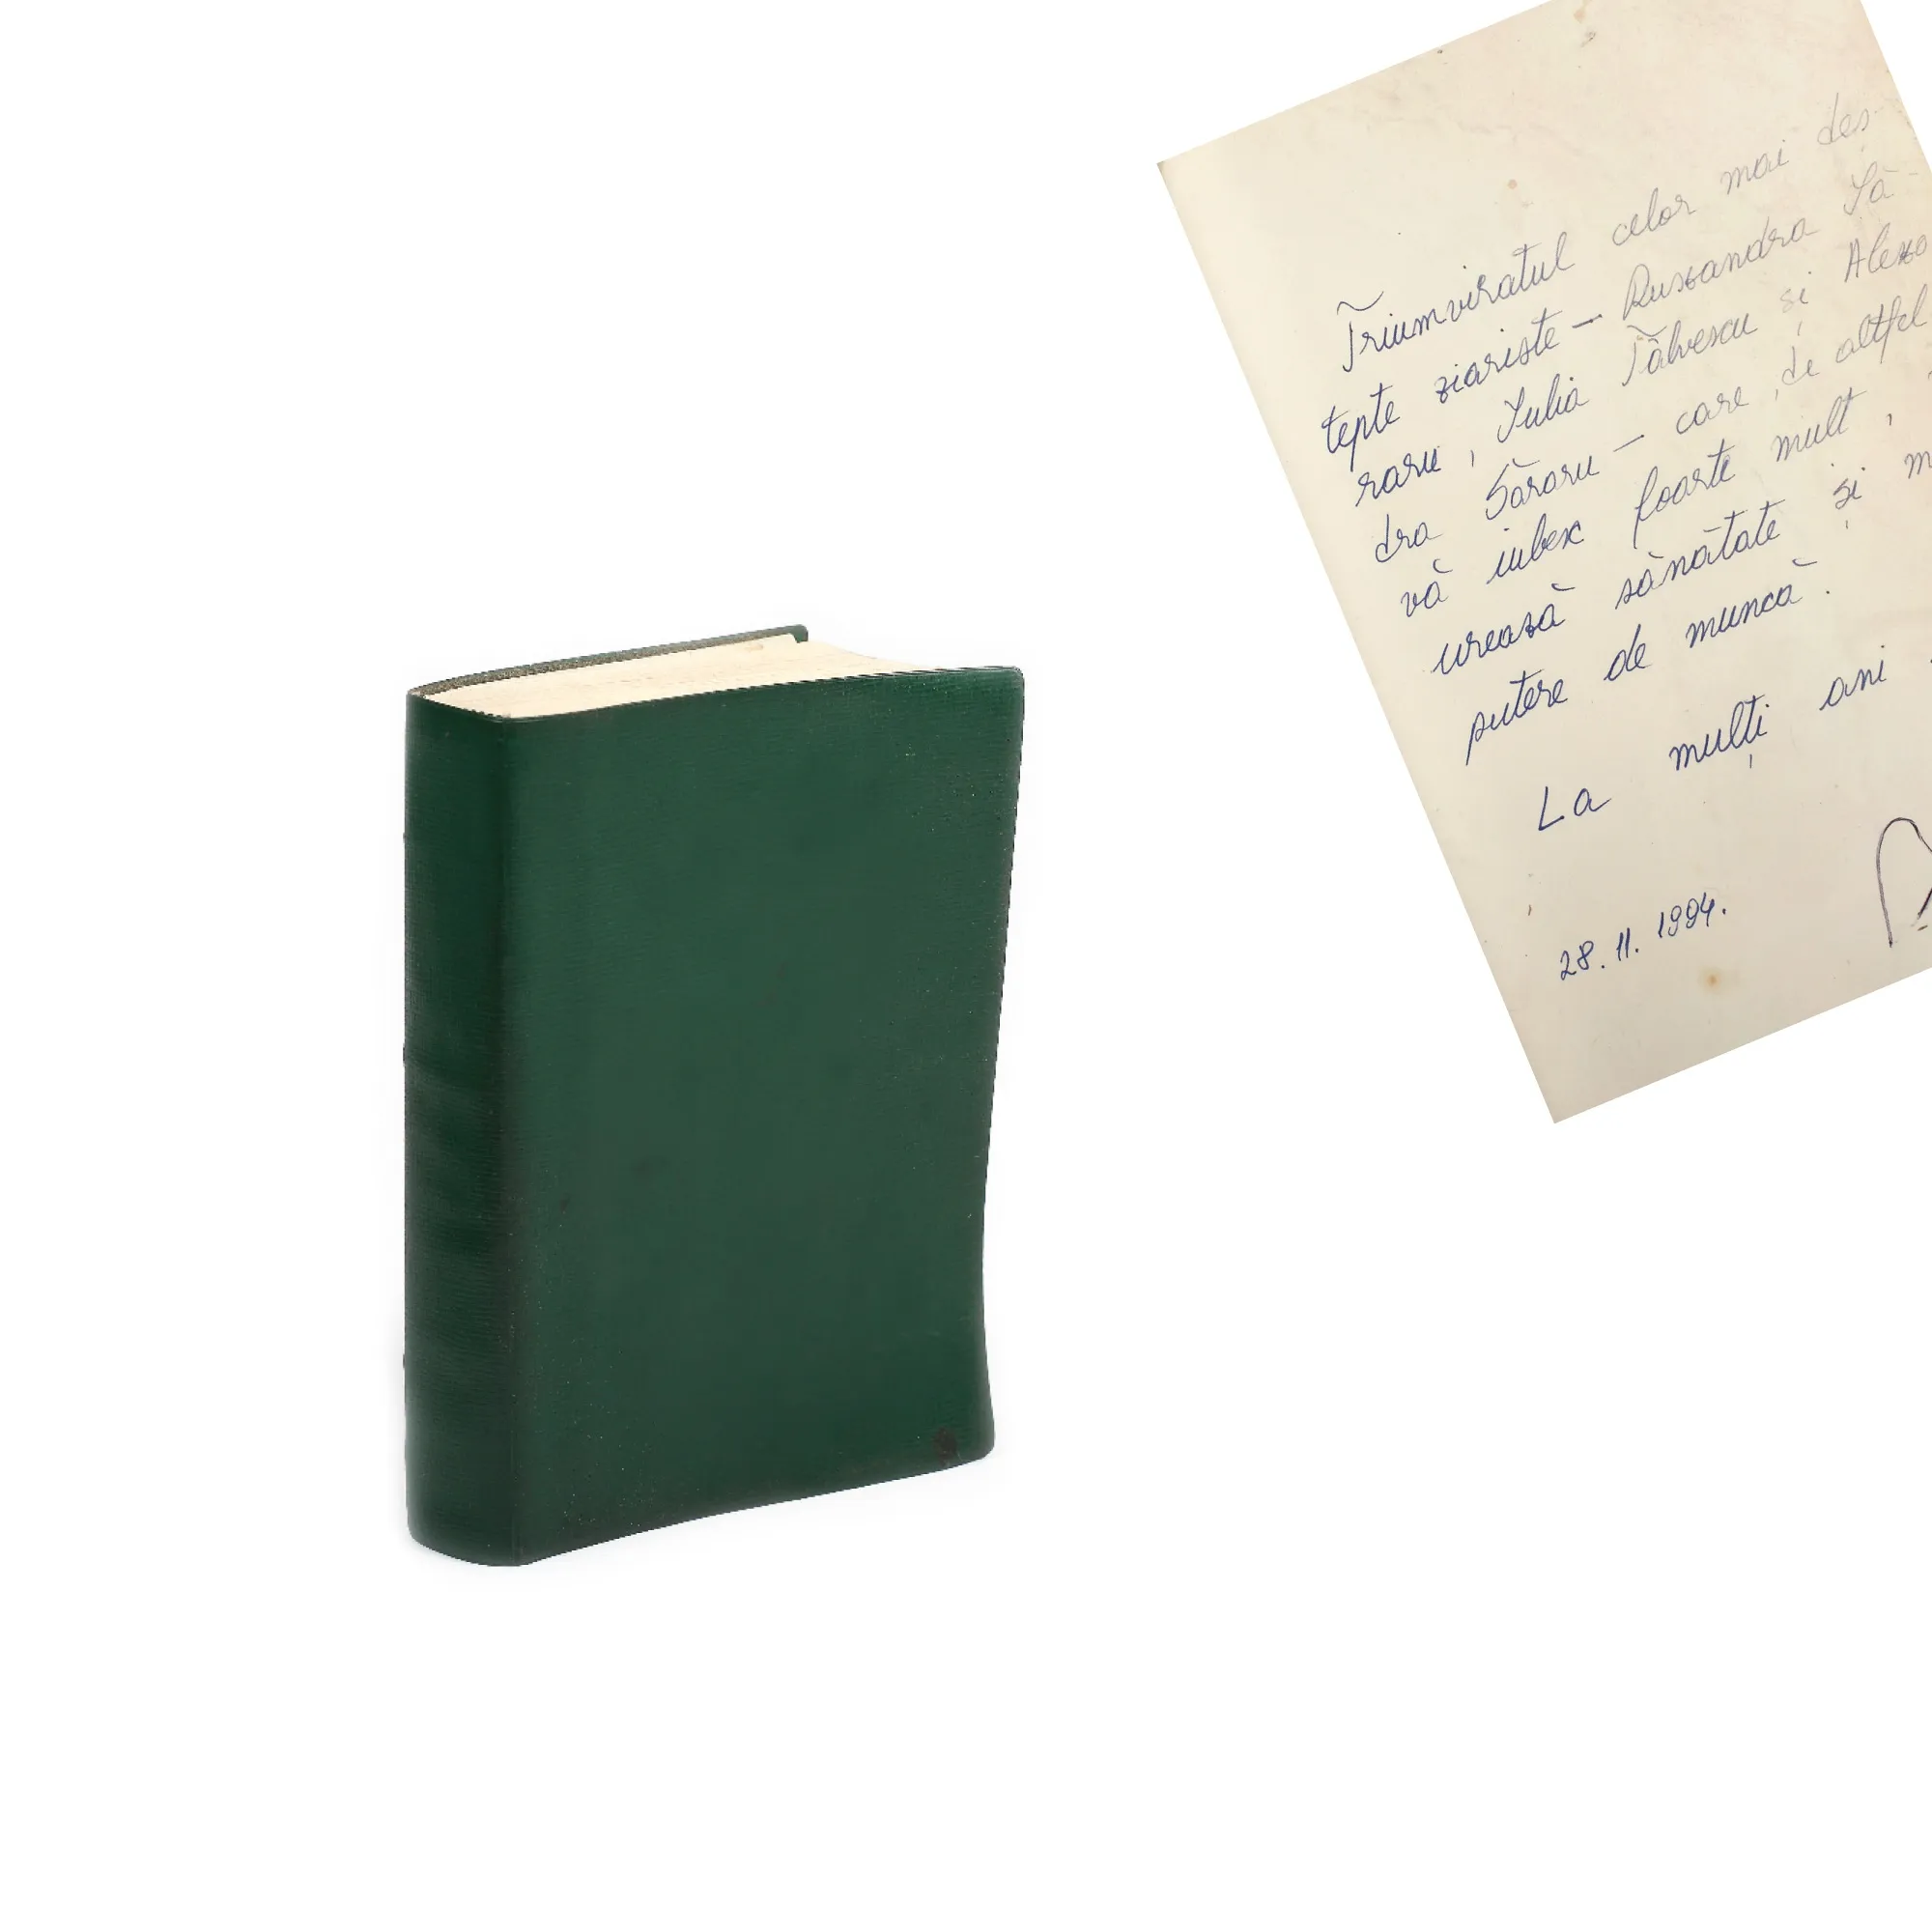 Triumviratul celor mai deș-
tepte ziariste – Ruxandra Să-
raru, Iulia Tălvescu și Alexa
dra Săraru – care, de altfel
vă iubesc foarte mult,
urează sănătate și
putere de muncă.
La mulți ani
28.11.1994.